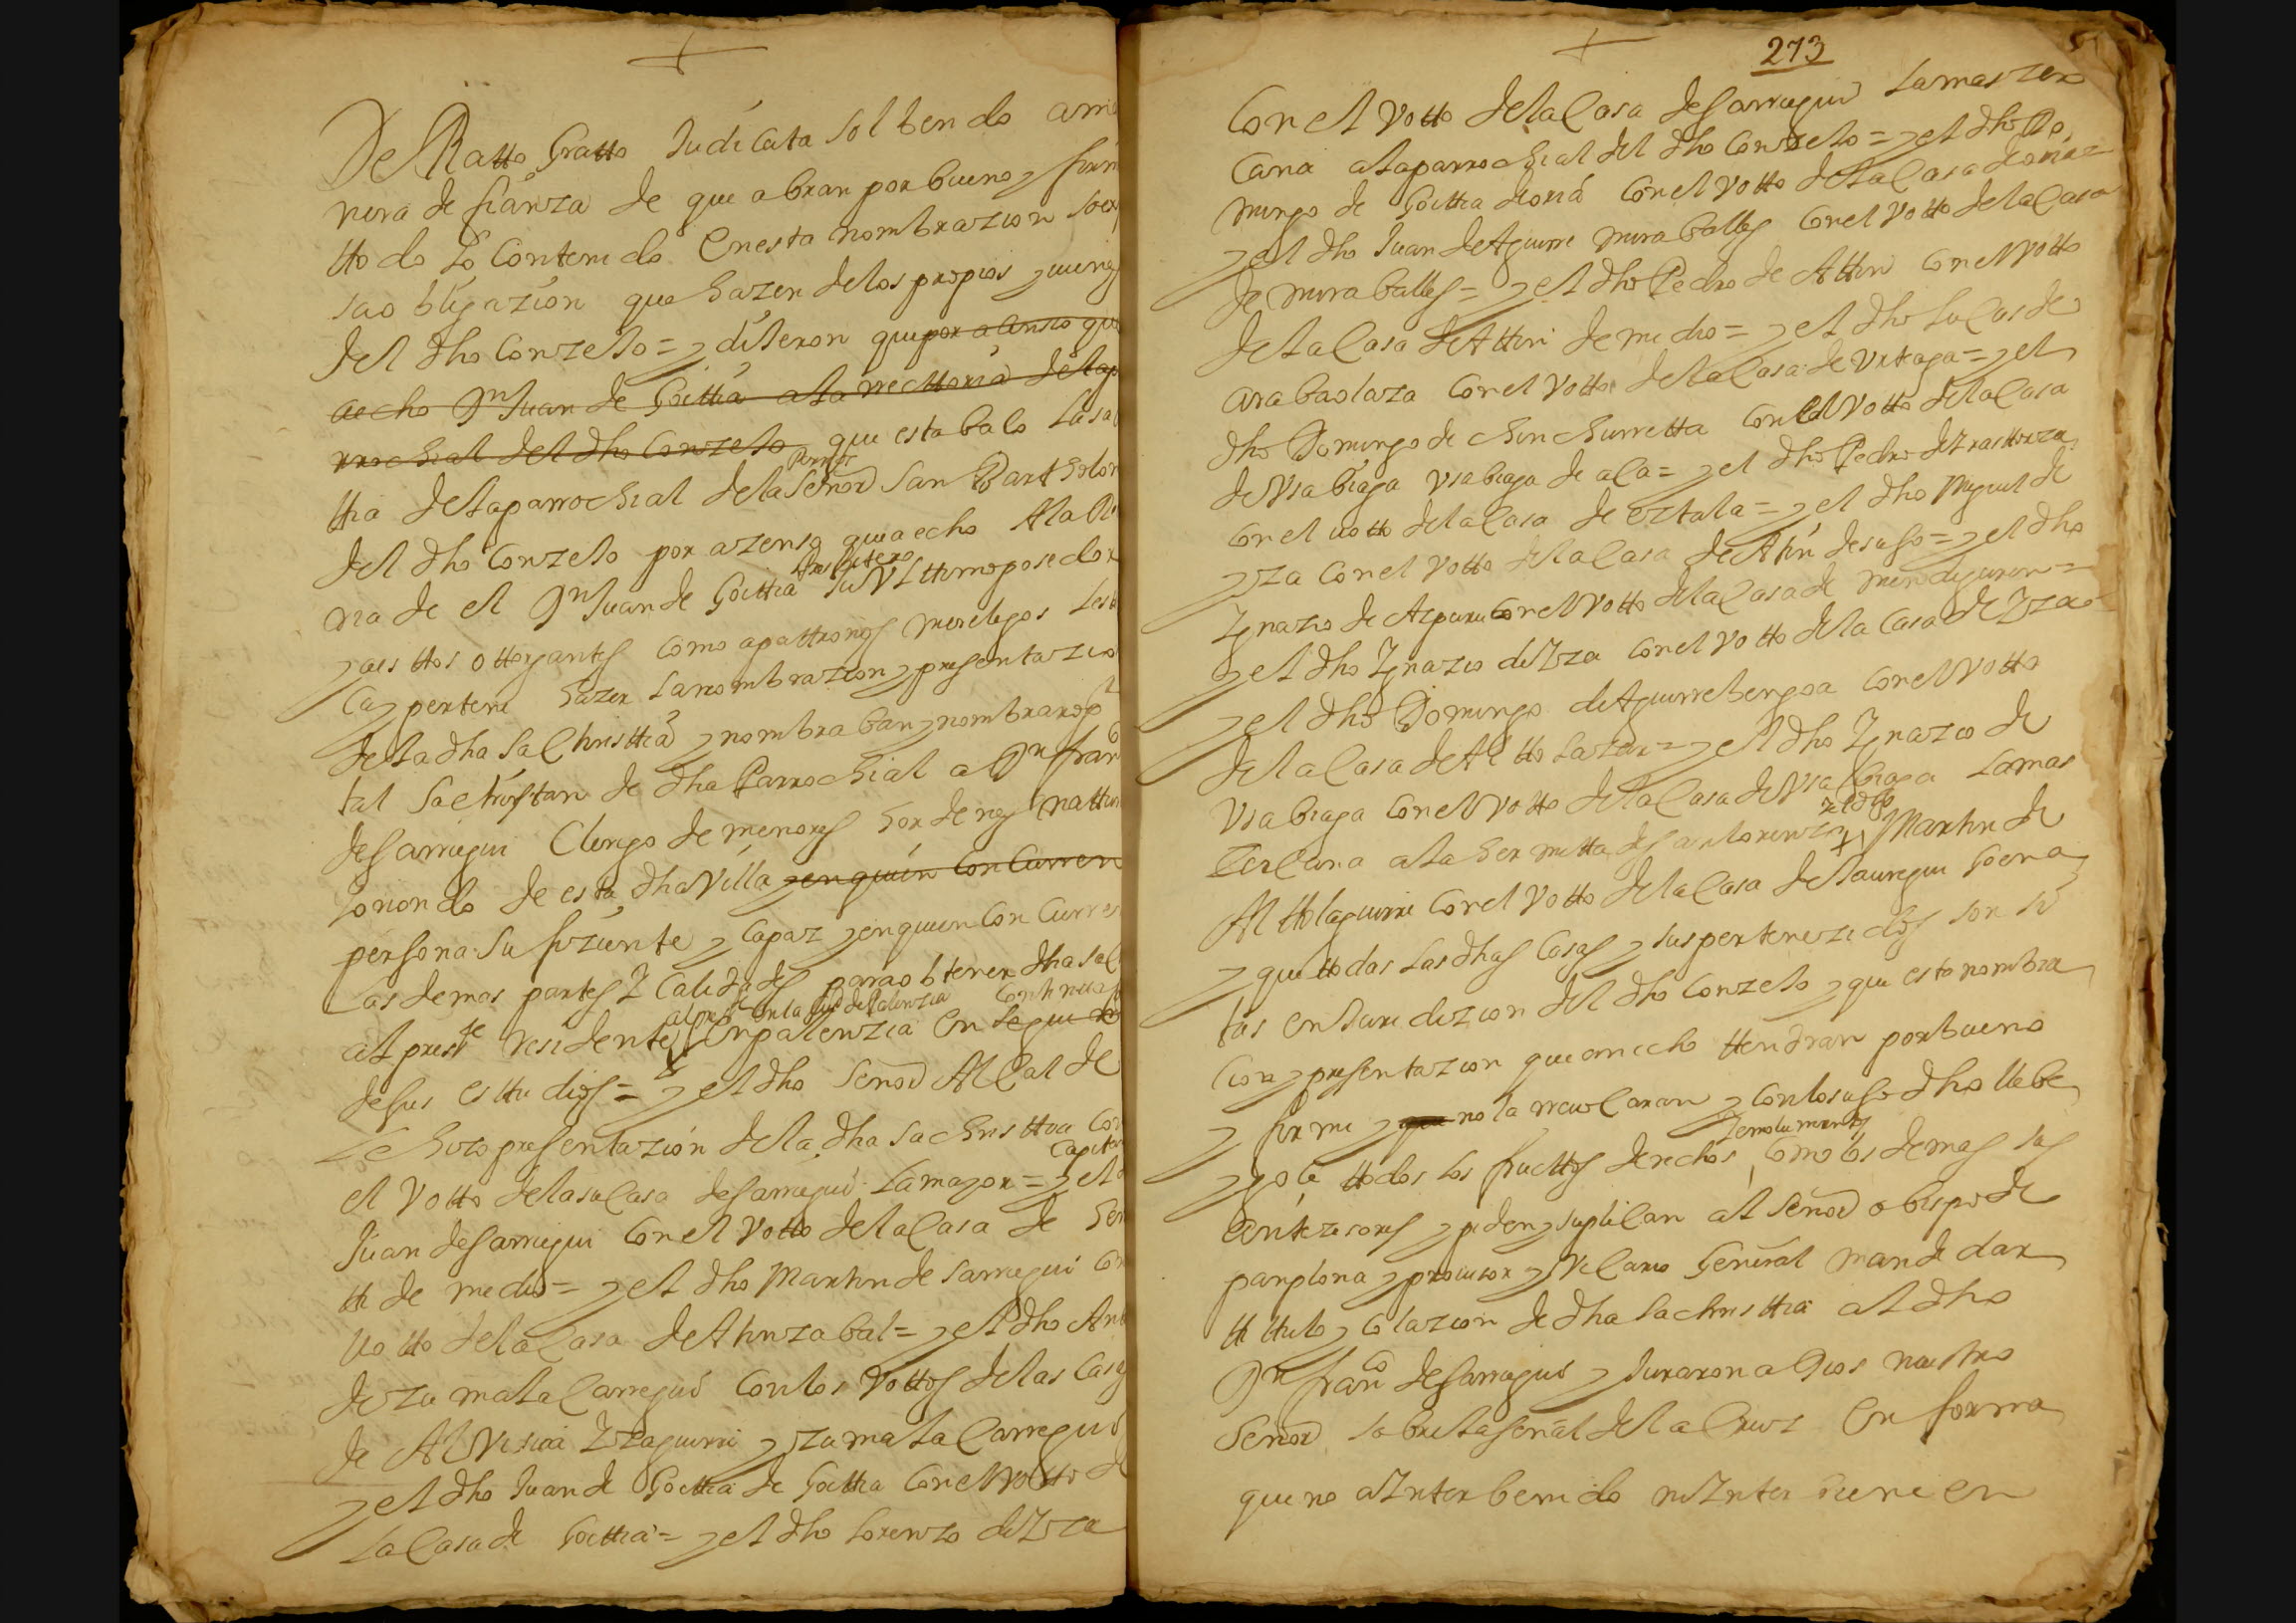 De Ratto Gratto Judicata Solbendo a m
nera de fianza de que abran por bueno y firm
ttodo lo Contenido en esta nombrazion so ex
sa obligazion que hazen de los propios y
del dho Conzejo = y dixeron que por aCenso que
aecho Dn Juan de Goittia a la rrecttoria de la pa
rrochial del dho Conzejo que esta bajo La sa
ttia de la parrochial de la Señor San Barttholom
del dho Conzejo por azenso que a echo A la R
ria de el Dn Juan de Goittia Presbitero su Vlttimo posedor
y a esttos ottorgantes como a pattronos merelegos Les
Ca y perteni hazer La nombrazion y presentazio
de la dha Sachristtia y nombraban y nombraron p
tal Sachristan de dha Parrochial a Dn fran
de Sarregui Clerigo de menores hordenes nattu
y oriondo de esta dha Villa y en quien Concurren
persona Sufiziente y Capaz y en quien Concurren
Las demas partes I Calidades para obtener dha Sa
al preste residente en la ziud de Palenzia en Palenzia Continuas en Seguir
de sus esttudios = y el dho Señor Alcalde
Le hizo presentazion de la dha Sachristtia Con
el Votto de la su Casa de Sarregui La mayor = y el Capitan
Juan de Sarregui Con el Votto de la Casa de
tti de medio = y el dho Martin de Sarregui Con
Votto de la Casa de Atinzabal = y el dho Ant
de Zumalacarregui Con los Vottos de las Casas
de Alvisua Yzaguirre y Zumalacarregui
y el dho Juan de Goittia de Goittia Con el Votto de
la Casa de Goittia = y el dho Lorenzo de Yza
273
Con el Votto de la Casa de Sarregui La mas zer
Cana a la parrochial del dho Conzejo = y el dho Do
mingo de Goittia dioria Con el Votto de la Casa dioria =
y el dho Juan de Aguirre miraballes Con el Votto de la Casa
de miraballes = y el dho Pedro de Attin Con el Votto
de la Casa de Attin de medio = y el dho Lucas de
arabaolaza Con el Votto de la Casa de Vrtaga = y el
dho Domingo de chinchurretta Con el Votto de la Casa
de Vsabiaga Vsabiaga de ala = y el dho Pedro de Yrastorza
Con el Votto de la Casa de Estala = y el dho Miguel de
Yza Con el Votto de la Casa de Atin de suso = y el dho
Ygnazio de Azpuru Con el Votto de la Casa de mendiguren =
y el dho Ygnazio de Yza Con el Votto de la Casa de Yza =
y el dho Domingo de Aguirrebengoa Con el Votto
de la Casa de Altto Lazar = y el dho Ygnazio de
Vsabiaga Con el Votto de la Casa de Vsabiaga La mas
Cercana a la hermitta de San Lorenzo y el dho Martin de
Alttolaguirre Con el Votto de la Casa de Jauregui Goena
y que ttodas Las dhas Casas y sus pertenezidos son si
tas en Juridizion del dho Conzejo y que esta nombra
cion y presentazion que an echo ttendran por bueno
y firme y no la rreuocaran y Con lo suso dho llebe
y goze ttodos los fructtos derechos y emolumentos Como los demas sus
antezesores y piden y suplican al Señor obispo de
panplona y prouisor y Vicario General mande dar
tittulo y Colazion de dha Sachristtia al dho
Dn franco de Sarregui y Juraron a Dios nuestro
Señor sobre la señal de la Cruz En forma
que no a Ynterbenido ni Ynterbiene en